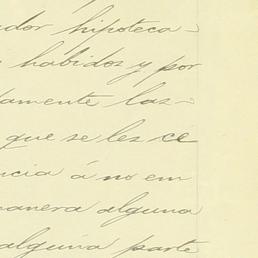 ador hipoteca-
habidos y por
damente las-
que se les ce
ncia á no em
manera alguna
alguna parte